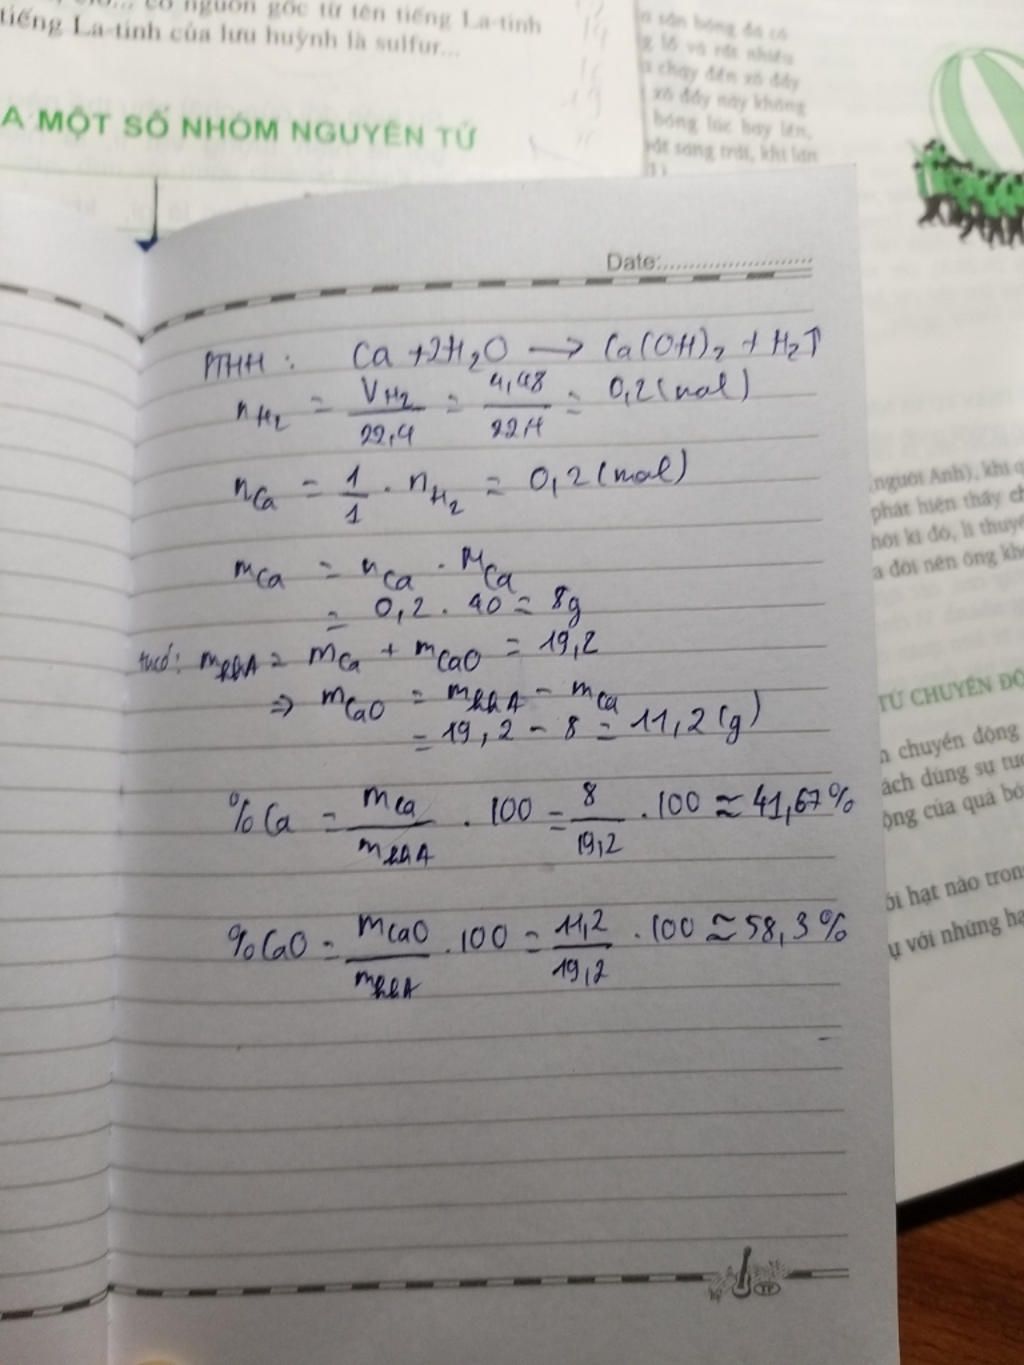 có nguồn gốc từ tên tiếng La-tinh
tiếng La-tinh của lưu huỳnh là sulfur...
A MỘT SỐ NHÓM NGUYÊN TỬ
sân bóng đá có
lồ và rất nhiều
chạy đến xô đẩy
xô đẩy này không
bóng lúc bay lên,
sang trái, khi lăn
Date:
PTHH : Ca + 2H₂O → Ca(OH)₂ + H₂↑
n_H₂ = V_H₂ / 22,4 = 4,48 / 22,4 = 0,2 (mol)
n_Ca = 1/1 . n_H₂ = 0,2 (mol)
m_Ca = n_Ca . M_Ca
= 0,2 . 40 = 8g
m_hhA = m_Ca + m_CaO = 19,2
⇒ m_CaO = m_hhA - m_Ca
= 19,2 - 8 = 11,2 (g)
%Ca = m_Ca / m_hhA . 100 = 8 / 19,2 . 100 ≈ 41,67%
%CaO = m_CaO / m_hhA . 100 = 11,2 / 19,2 . 100 ≈ 58,3%
người Anh), khi
phát hiện thấy
đó, lí thuyết
đời nên ông
TỬ CHUYỂN ĐỘ
chuyển động
cách dùng sự
của quả
hạt nào
với những
TP